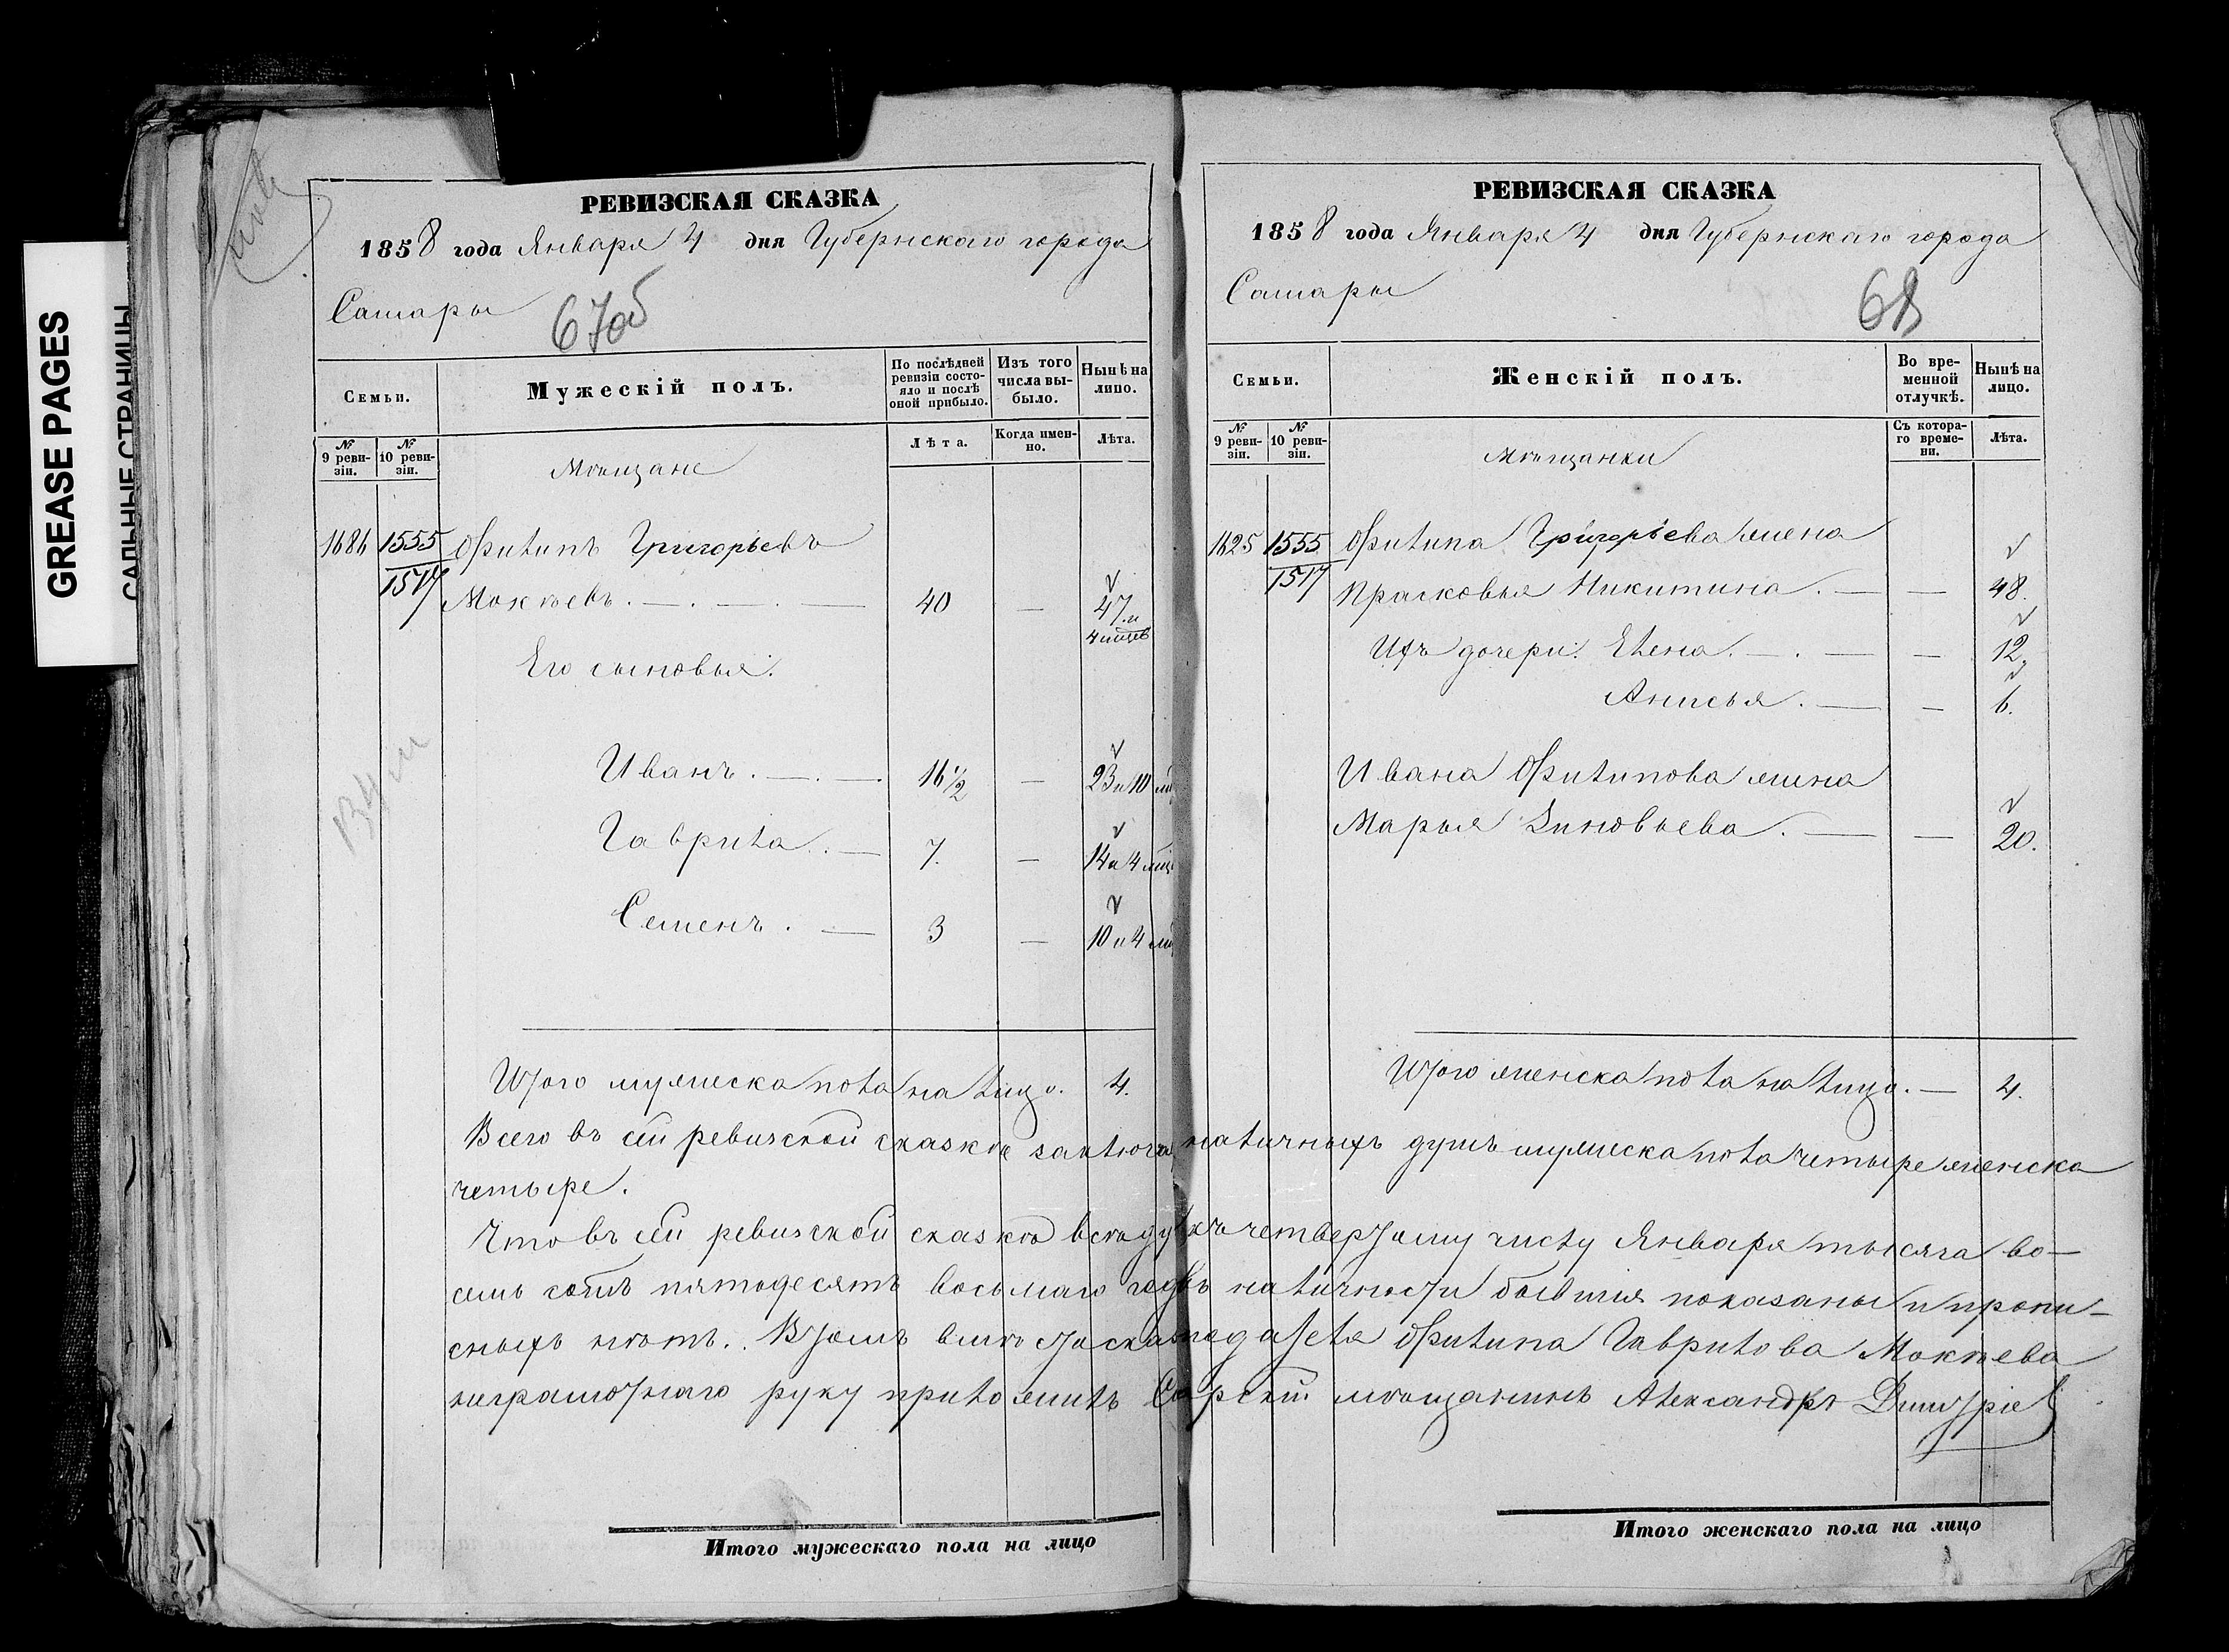 GREASE PAGES
САЛЬНЫЕ СТРАНИЦЫ
РЕВИЗСКАЯ СКАЗКА
1858 года Января 4 дня Губернскаго города
Самары
67об
Семьи.
Мужескій полъ.
По послѣдней ревизіи состояло и послѣ оной прибыло.
Изъ того числа выбыло.
Нынѣ на лицо.
№ 9 ревизіи.
№ 10 ревизіи.
Лѣта.
Когда именно.
Лѣта.
Мѣщане
1686 1555 Филипъ Григорьевъ
1517 Мокѣевъ. — 40 — 47 и
4 мщев
Его сыновья.
Иванъ. — 16 1/2 — 23 и 10 мц
Гаврила. — 7. — 14 и 4 мщ
Семенъ. — 3 — 10 и 4 мц
Итого мужеска пола на лицо. 4.
РЕВИЗСКАЯ СКАЗКА
1858 года Января 4 дня Губернскаго города
Самары
68
Семьи.
Женскій полъ.
Во временной отлучкѣ.
Нынѣ на лицо.
№ 9 ревизіи.
№ 10 ревизіи.
Съ котораго времени.
Лѣта.
Мѣщанки
1625 1555 Филипа Григорьева жена
1517 Прасковья Никитина. — — 48.
Ихъ дочери: Елена. — — 12.
Анисья. — — 6.
Ивана Филипова жена
Марья Зиновьева. — — 20.
Итого женска пола на лицо. — 4.
Всего въ сей ревизской сказкѣ заключа наличныхъ душъ мужеска пола четыре женска
четыре.
Что въ сей ревизской сказкѣ всѣ ду къ четвертому числу Января тысяча во-
семь сотъ пятодесятъ восьмаго года въ наличности бывшия показаны и пропи-
сныхъ нѣтъ.. Втомъ вмѣсто сказкоподателя Филипа Гаврилова Мокѣева
неграмотнаго руку приложилъ Са рскій мѣщанинъ Александръ Дмитріев
Итого мужескаго пола на лицо
Итого женскаго пола на лицо